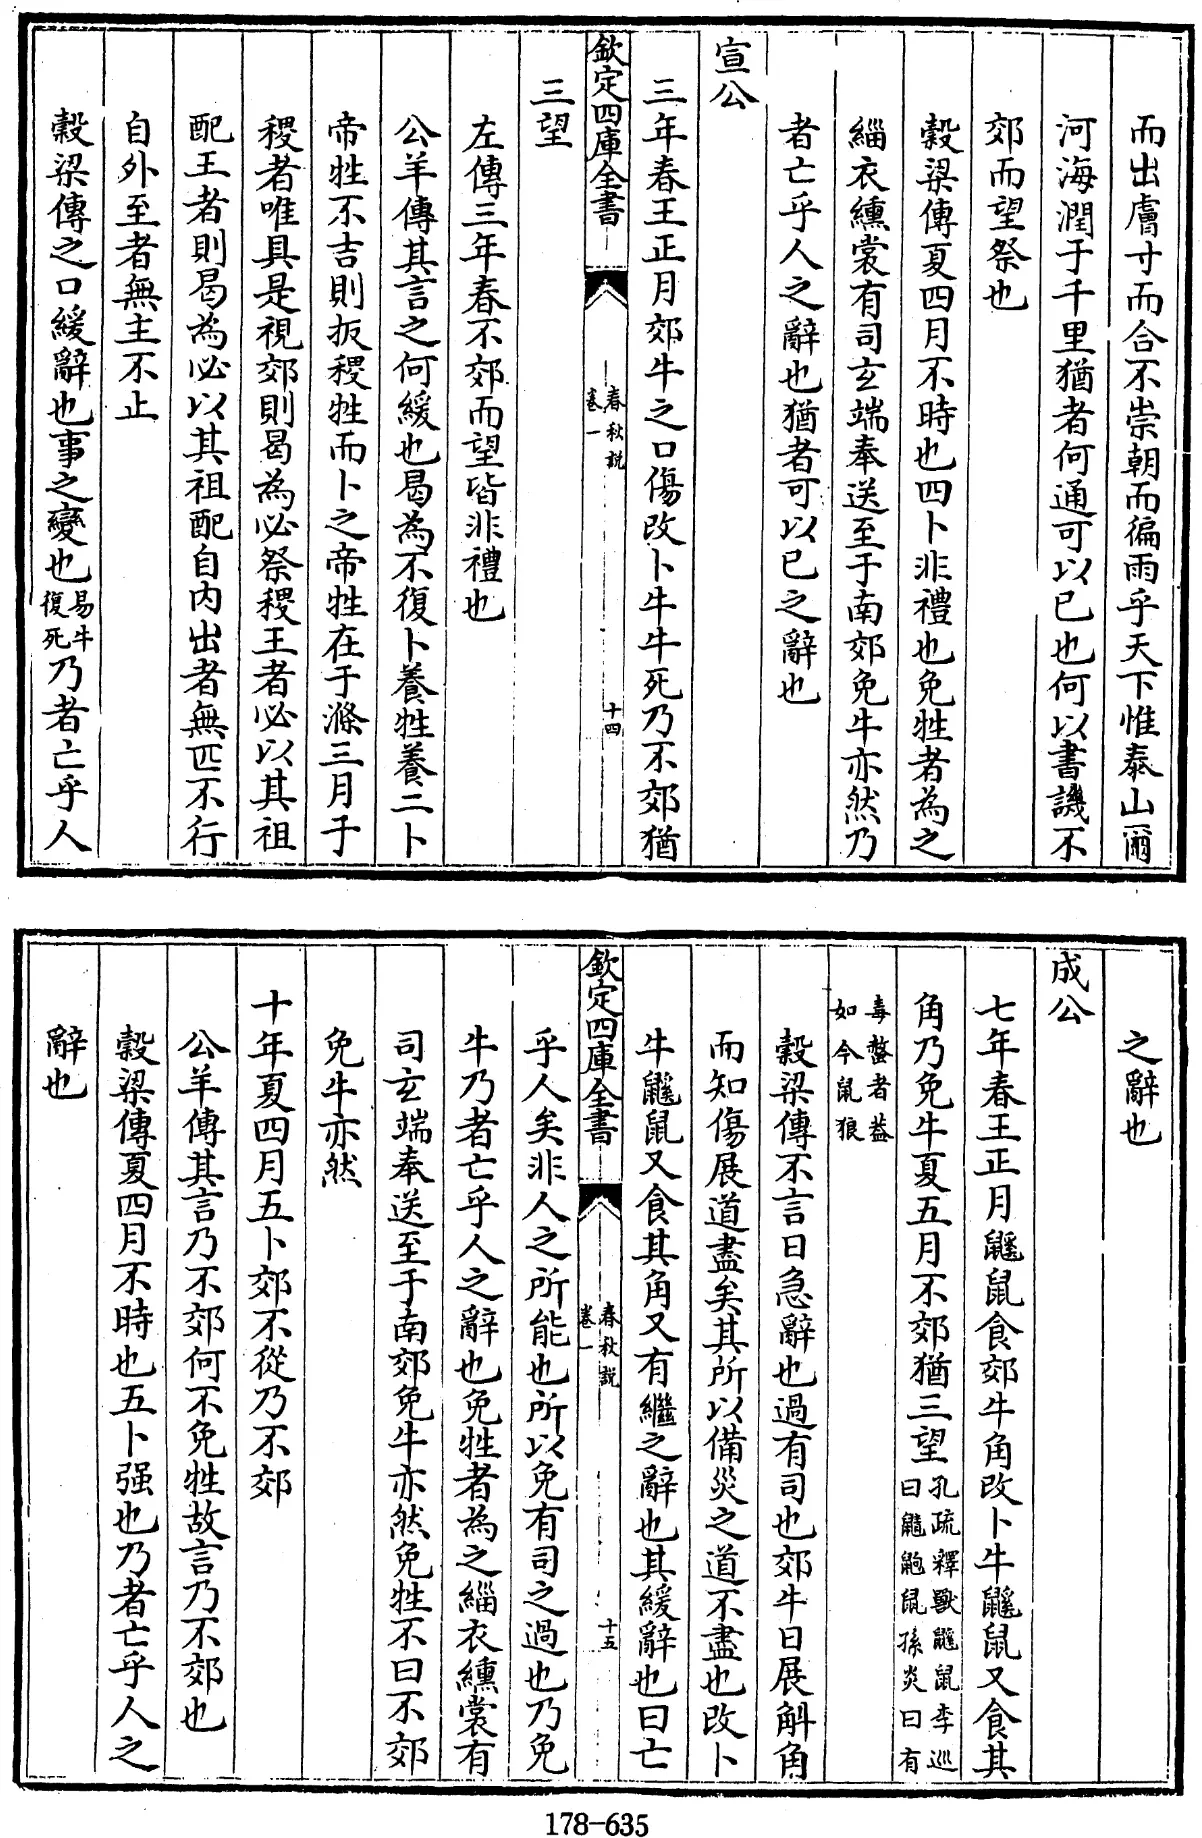 而出膚寸而合不崇朝而徧雨乎天下惟泰山爾
河海潤于千里猶者何通可以已也何以書譏不
郊而望祭也
穀梁傳夏四月不時也四卜非禮也免牲者為之
緇衣纁裳有司玄端奉送至于南郊免牛亦然乃
者亡乎人之辭也猶者可以已之辭也
宣公
三年春王正月郊牛之口傷改卜牛牛死乃不郊猶
欽定四庫全書
春秋說
卷一
十四
三望
左傳三年春不郊而望皆非禮也
公羊傳其言之何緩也曷為不復卜養牲養二卜
帝牲不吉則扳稷牲而卜之帝牲在于滌三月于
稷者唯具是視郊則曷為必祭稷王者必以其祖
配王者則曷為必以其祖配自內出者無匹不行
自外至者無主不止
穀梁傳之口緩辭也事之變也易牛
復死乃者亡乎人
之辭也
成公
七年春王正月鼷鼠食郊牛角改卜牛鼷鼠又食其
角乃免牛夏五月不郊猶三望孔疏釋獸鼷鼠李巡
曰鼱鼩鼠孫炎曰有
毒螫者葢
如今鼠狼
穀梁傳不言日急辭也過有司也郊牛日展斛角
而知傷展道盡矣其所以備災之道不盡也改卜
牛鼷鼠又食其角又有繼之辭也其緩辭也曰亡
欽定四庫全書
春秋說
卷一
十五
乎人矣非人之所能也所以免有司之過也乃免
牛乃者亡乎人之辭也免牲者為之緇衣纁裳有
司玄端奉送至于南郊免牛亦然免牲不曰不郊
免牛亦然
十年夏四月五卜郊不從乃不郊
公羊傳其言乃不郊何不免牲故言乃不郊也
穀梁傳夏四月不時也五卜强也乃者亡乎人之
辭也
178-635